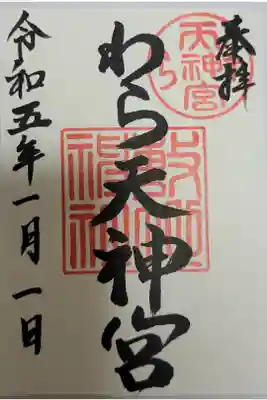 奉拝
わら天神宮
令和五年一月一日
天神宮
わら
敷地神社